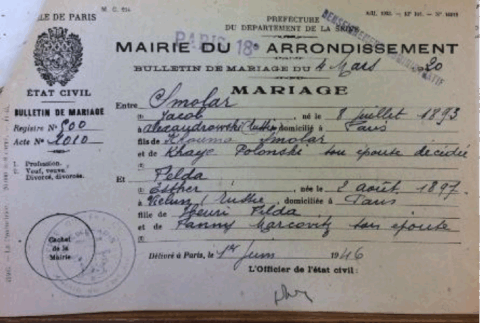 LE DE PARIS
PRÉFECTURE
DU DÉPARTEMENT DE LA SEINE
MAIRIE DU 18e ARRONDISSEMENT
PARIS
BULLETIN DE MARIAGE DU 4 Mars 20
MARIAGE
ÉTAT CIVIL
BULLETIN DE MARIAGE
Registre No 800
Acte No 1010
1. Profession.
2. Veuf, veuve.
Divorcé, divorcée.
Entre Smolar
(1) Jacob, né le 8 juillet 1893
à domicilié à Paris
fils de Smolar
et de Khaya Polonski son épouse décédée
(2)
Et Pelda
(1) Esther, née le 2 août 1897
à domiciliée à Paris
fille de Henri Pelda
et de Fanny Marcovitz son épouse
(2)
Cachet
de la
Mairie
Délivré à Paris, le 1er Juin 1946
L'Officier de l'état civil :